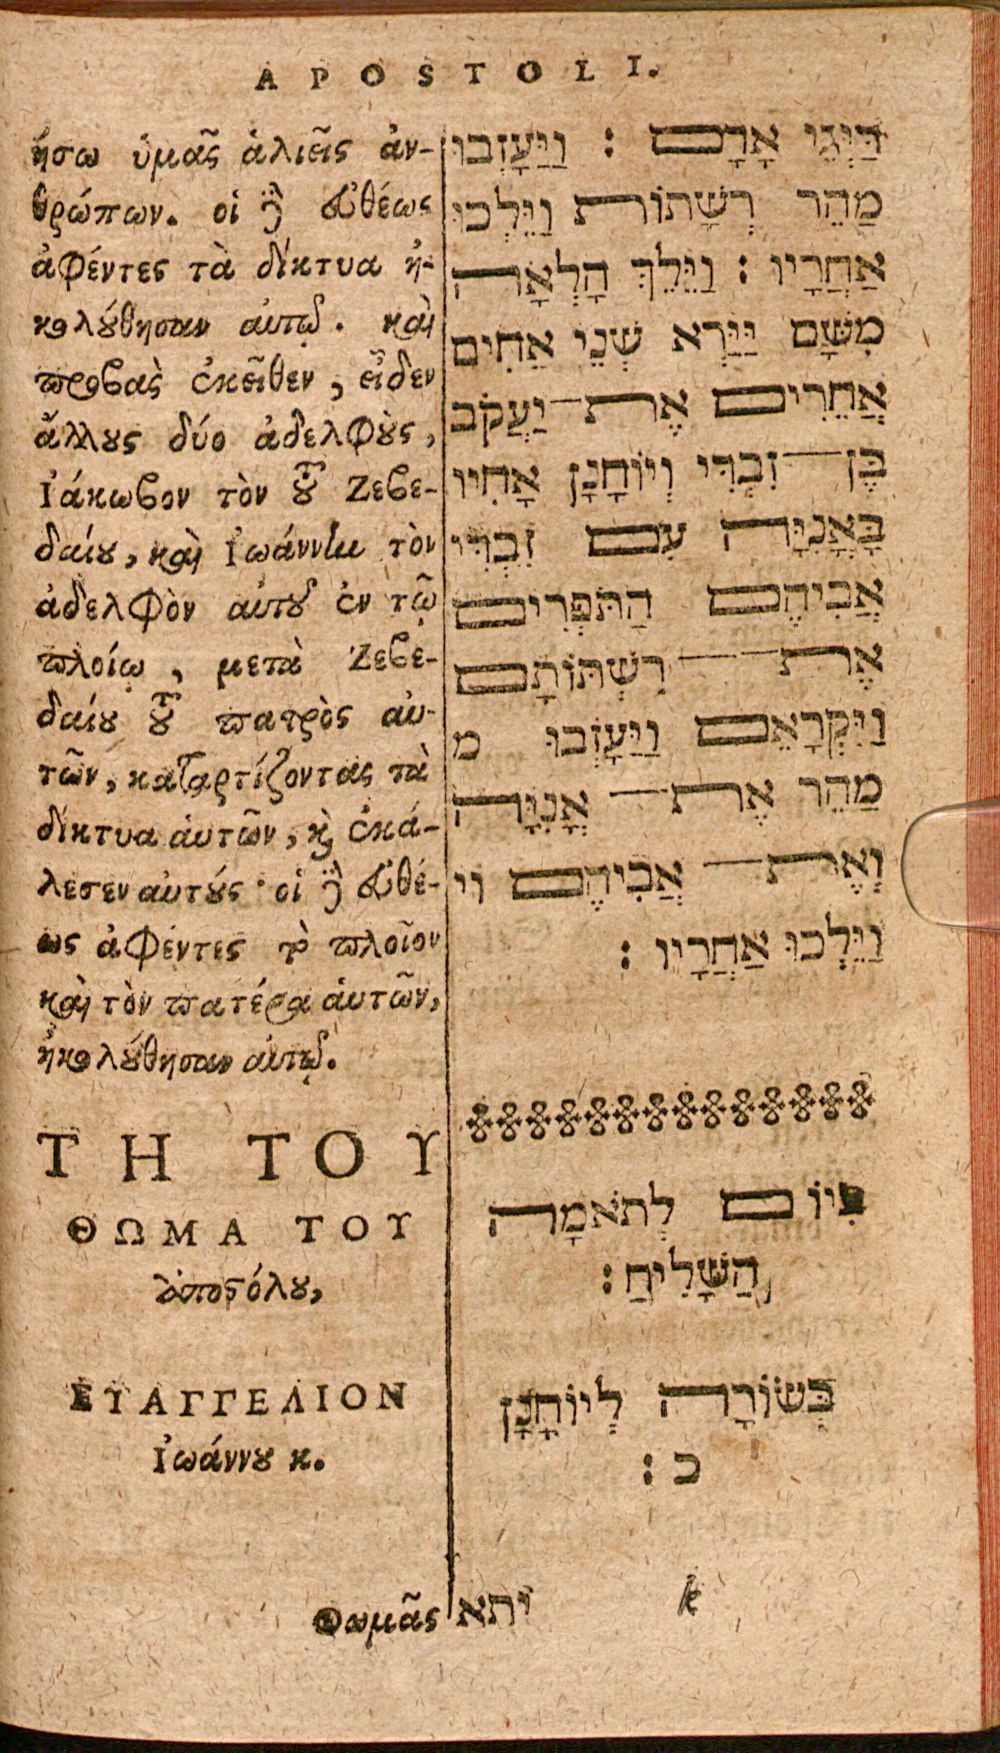 APOSTOLI.
ήσω ὑμᾶς ἁλιεῖς ἀν-
θρώπων. οἱ δὲ εὐθέως
ἀφέντες τὰ δίκτυα ἠ-
κολούθησαν αὐτῷ. καὶ
προβὰς ἐκεῖθεν, εἶδεν
ἄλλους δύο ἀδελφοὺς,
Ἰάκωβον τὸν τοῦ Ζεβε-
δαίου, καὶ Ἰωάννην τὸν
ἀδελφὸν αὐτοῦ ἐν τῷ
πλοίῳ, μετὰ Ζεβε-
δαίου τοῦ πατρὸς αὐ-
τῶν, καταρτίζοντας τὰ
δίκτυα ἁυτῶν, καὶ ἐκά-
λεσεν αὐτούς· οἱ δὲ εὐθέ-
ως ἀφέντες τὸ πλοῖον
καὶ τὸν πατέρα ἁυτῶν,
ἠκολούθησαν αὐτῷ.
ΤΗ ΤΟΥ
ΘΩΜΑ ΤΟΥ
ἀποστόλου,
ΕΥΑΓΓΕΛΙΟΝ
Ἰωάννου κ.
Θωμᾶς
דַּיְּגֵי אָדָם : וַיַּעַזְבוּ
מַהֵר רְשָׁתוֹת וַיֵּלְכוּ
אַחֲרָיו : וַיֵּלֵךְ הָלְאָה
מִשָּׁם יַיַּרְא שְׁנֵי אַחִים
אֲחֵרִים אֶת־יַעֲקֹב
בֶּן־זִבְדִּי וְיוֹחָנָן אָחִיו
בָּאֳנִיָּה עִם זִבְדִּי
אֲבִיהֶם הַתֹּפְרִים
אֶת־רִשְׁתּוֹתָם
וַיִּקְרָאֵם וַיַּעַזְבוּ מ
מַהֵר אֶת־אֳנִיָּה
וְאֶת־אֲבִיהֶם וי
וַיֵּלְכוּ אַחֲרָיו :
בְּיוֹם לְתֹאמָה
הַשָּׁלִיחַ :
בְּשׂוֹרָה לְיוֹחָנָן
כ :
k